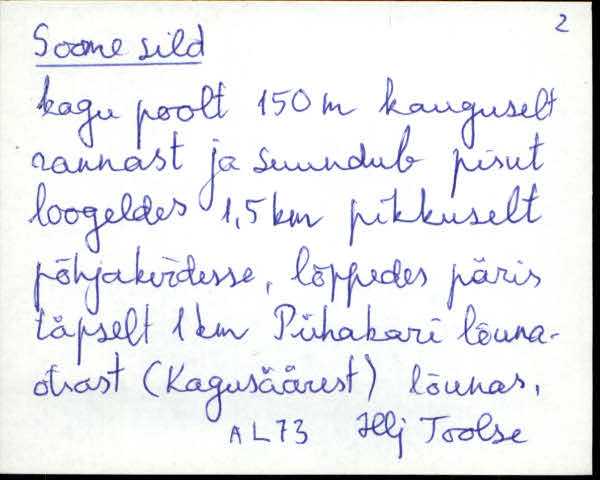 2
Soome sild
kagu poolt 150 m kauguselt
rannast ja suundub pisut
loogeldes 1,5 km pikkuselt
põhjakirdesse, lõppedes päris
täpselt 1 km Pühakari lõuna-
otsast (Kagusäärest) lõunas.
AL 73 Hlj Toolse